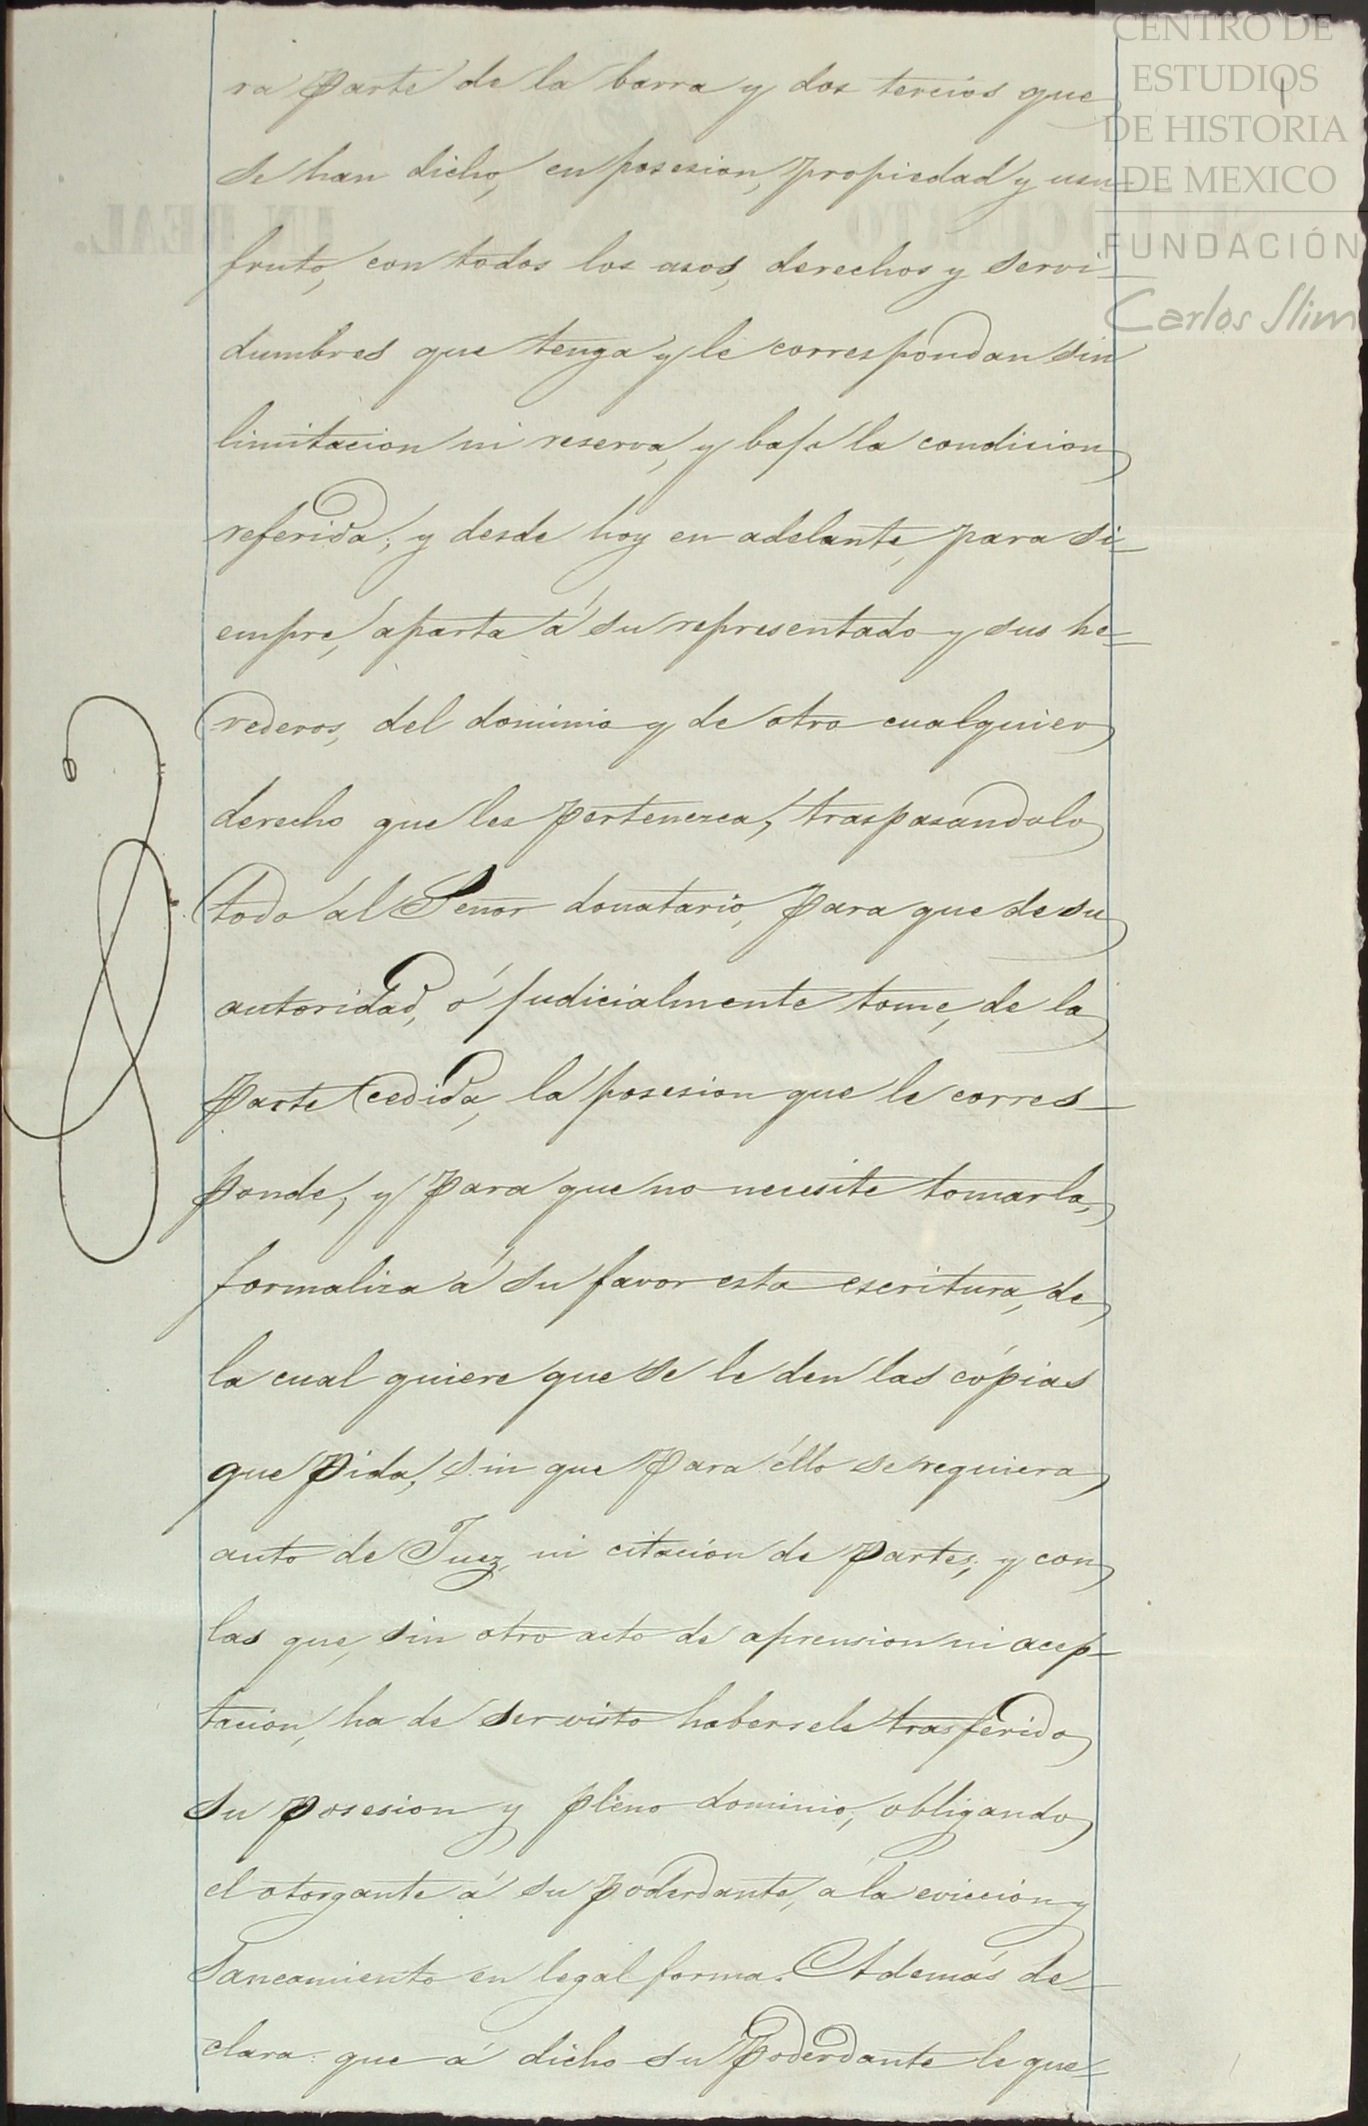 ra parte de la barra y dos tercios que
se han dicho, en posesion, propiedad y usu-
fruto, con todos los usos, derechos y servi-
dumbres que tenga y le correspondan sin
limitacion ni reserva, y bajo la condicion
referida; y desde hoy en adelante, para si-
empre, aparta á su representado y sus he-
rederos, del dominio y de otro cualquier
derecho que les pertenezca, traspasandolo
todo al Señor donatario, para que de su
autoridad, ó judicialmente tome, de la
parte cedida, la posesion que le corres-
ponde; y para que no necesite tomarla,
formaliza á su favor esta escritura, de
la cual quiere que se le den las cópias
que pida, sin que para éllo se requiera
auto de Juez, ni citacion de partes; y con
las que, sin otro acto de aprension ni acep-
tacion, ha de ser visto habersele trasferido
su posesion y pleno dominio, obligando
el otorgante á su poderdante, á la eviccion y
Saneamiento en legal forma. Además de-
clara: que á dicho su Poderdante le que-
CENTRO DE
ESTUDIOS
DE HISTORIA
DE MEXICO
FUNDACIÓN
Carlos Slim
SELLO CUARTO
UN REAL.